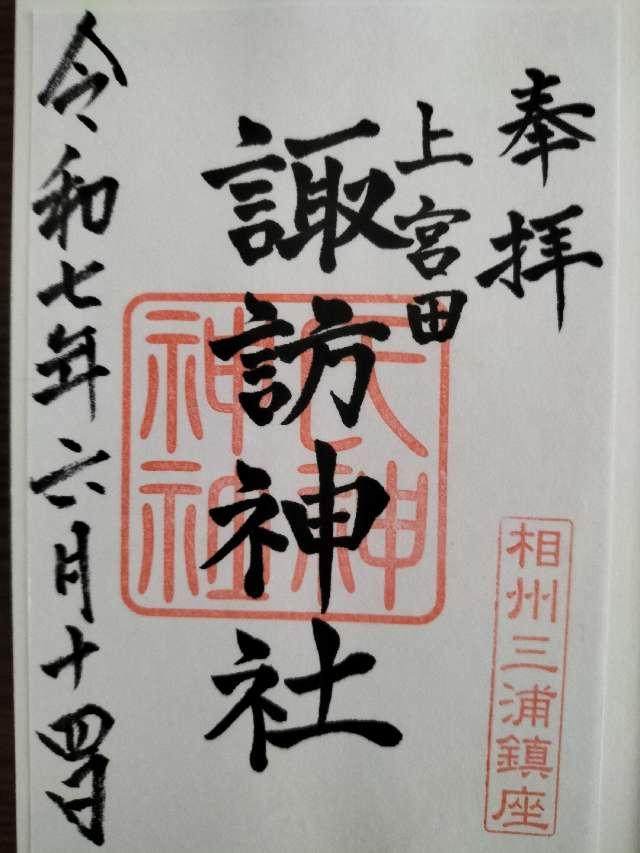 奉拝
上宮田
諏訪神社
天神
神社
相州三浦鎮座
令和七年六月十四日